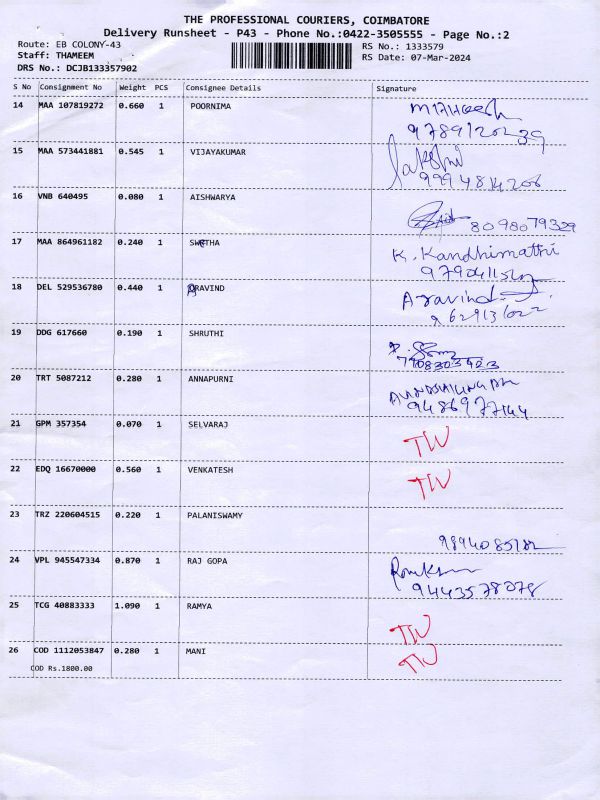 THE PROFESSIONAL COURIERS, COIMBATORE
Delivery Runsheet - P43 - Phone No.:0422-3505555 - Page No.:2
Route: EB COLONY-43
RS No.: 1333579
Staff: THAMEEM
RS Date: 07-Mar-2024
DRS No.: DCJB133357902
S No Consignment No Weight PCS Consignee Details Signature
14 MAA 107819272 0.660 1 POORNIMA
15 MAA 573441881 0.545 1 VIJAYAKUMAR Lakshmi
9994814206
16 VNB 640495 0.080 1 AISHWARYA
8098079329
17 MAA 864961182 0.240 1 SWETHA K. Kandhimathi
18 DEL 529536780 0.440 1 ARAVIND Aravind
9629131022
19 DDG 617660 0.190 1 SHRUTHI
7708303423
20 TRT 5087212 0.280 1 ANNAPURNI
9486977144
21 GPM 357354 0.070 1 SELVARAJ
22 EDQ 16670000 0.560 1 VENKATESH
23 TRZ 220604515 0.220 1 PALANISWAMY
24 VPL 945547334 0.870 1 RAJ GOPA
9443578078
25 TCG 40883333 1.090 1 RAMYA
26 COD 1112053847 0.280 1 MANI
COD Rs.1800.00